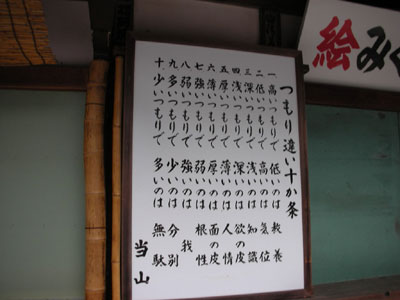 絵み
つもり違い十か条
一 高いつもりで 低いのは 教養
二 低いつもりで 高いのは 気位
三 深いつもりで 浅いのは 知識
四 浅いつもりで 深いのは 欲の皮
五 厚いつもりで 薄いのは 人情
六 薄いつもりで 厚いのは 面の皮
七 強いつもりで 弱いのは 根性
八 弱いつもりで 強いのは 我
九 多いつもりで 少いのは 分別
十 少いつもりで 多いのは 無駄
当山